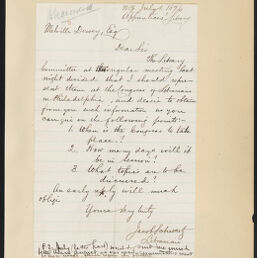 N.Y. July 1876
Apprentices' Library
Melvil Dewey, Esq
Dear Sir
The Library
Committee at the regular meeting last
night decided that I should repre-
sent them at the Congress of Librarians
in Philadelphia, and desire to obtain
from you such information as you
can give on the following points:-
1. When is the Congress to take
place??
2. How many days will it
be in session?
3. What topics are to be
discussed?
An early reply will much
oblige
Yours very truly
Jacob Schwartz
Librarian